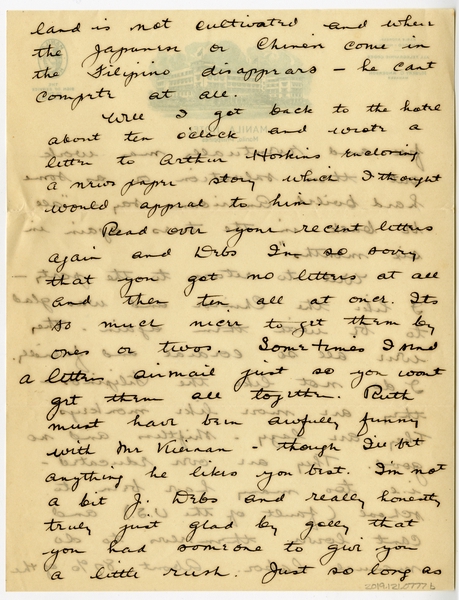 land is not cultivated and when
the Japanese or Chinese come in
the Filipino disappears - he cant
compete at all.
Well I got back to the hotel
about ten o'clock and wrote a
letter to Arthur Hoskins enclosing
a newspaper story which I thought
would appeal to him.
Read over your recent letters
again and Debs I'm so sorry
that you got no letters at all
and then ten all at once. Its
so much nicer to get them by
ones or twos. Sometimes I send
a letter airmail just so you wont
get them all together. Ruth
must have been awfully funny
with Mr Viernan - though I'll bet
anything he likes you best. I'm not
a bit J. Debs and really honestly
truly just glad by golly that
you had someone to give you
a little rush. Just so long as
2019.121.0777b